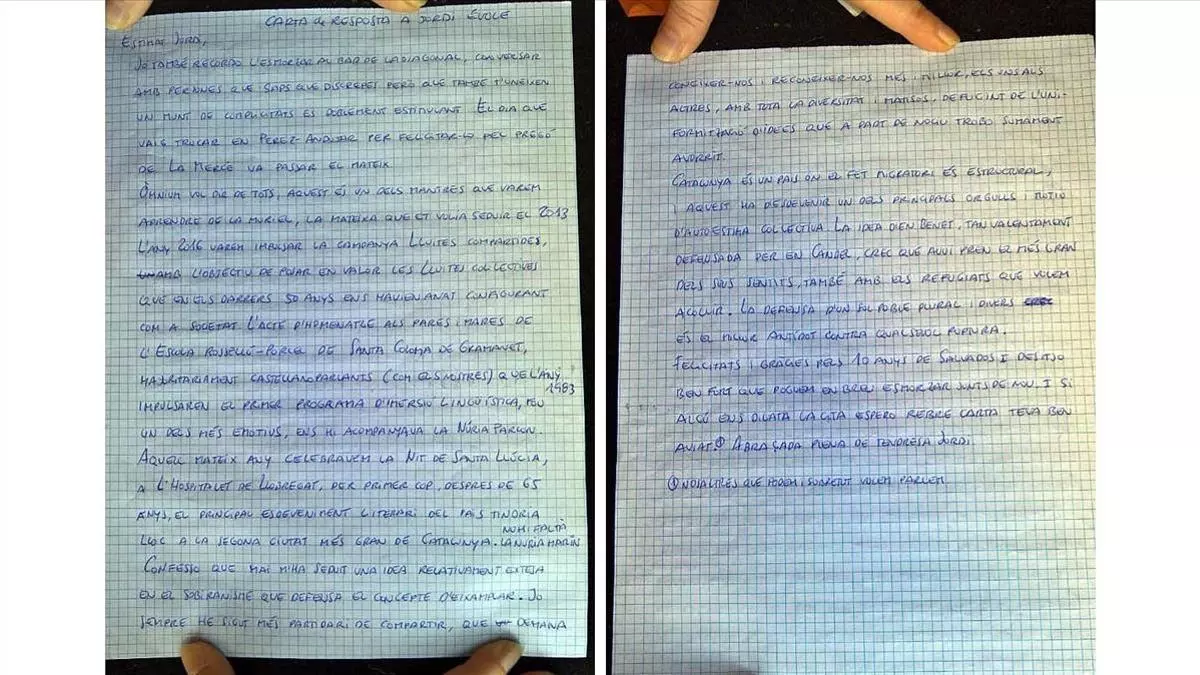 CARTA de RESPOSTA A JORDI ÉVOLE
ESTIMAT JORDI,
JO TAMBÉ RECORDO L'ESMORZAR AL BAR DE LA DIAGONAL, CONVERSAR
AMB PERSONES QUE SAPS QUE DISCREPES PERÒ QUE TAMBÉ T'UNEIXEN
UN MUNT DE COMPLICITATS ÉS DOBLEMENT ESTIMULANT. EL DIA QUE
VAIG TRUCAR EN PEREZ-ANDUJAR PER FELICITAR-LO PEL PREGÓ
DE LA MERCÈ VA PASSAR EL MATEIX.
ÒMNIUM VOL DIR DE TOTS, AQUEST ÉS UN DELS MANTRES QUE VAREM
APRENDRE DE LA MURIEL, LA MATEIXA QUE ET VOLIA SEGUIR EL 2013
L'ANY 2016 VAREM IMPULSAR LA CAMPANYA LLUITES COMPARTIDES,
AMB L'OBJECTIU DE POSAR EN VALOR LES LLUITES COL·LECTIVES
QUE EN ELS DARRERS 50 ANYS ENS HAVIEN ANAT CONFIGURANT
COM A SOCIETAT. L'ACTE D'HOMENATGE ALS PARES I MARES DE
L'ESCOLA ROSSELLÓ-PORCEL DE SANTA COLOMA DE GRAMANET,
MAJORITARIAMENT CASTELLANOPARLANTS (COM ELS NOSTRES) QUE L'ANY 1983
IMPULSAREN EL PRIMER PROGRAMA D'IMERSIÓ LINGÜÍSTICA, FOU
UN DELS MÉS EMOTIUS, ENS HI ACOMPANYAVA LA NÚRIA PARLON.
AQUELL MATEIX ANY CELEBRAVEM LA NIT DE SANTA LLÚCIA,
A L'HOSPITALET DE LLOBREGAT, PER PRIMER COP, DESPRES DE 65
ANYS, EL PRINCIPAL ESDEVENIMENT LITERARI DEL PAIS TINDRIA
LLOC A LA SEGONA CIUTAT MÉS GRAN DE CATALUNYA. NO HI FALTÀ LA NURIA MARIN
CONFESSO QUE MAI M'HA SEDUIT UNA IDEA RELATIVAMENT EXTESA
EN EL SOBIRANISME QUE DEFENSA EL CONCEPTE D'EIXAMPLAR. JO
SEMPRE HE SIGUT MÉS PARTIDARI DE COMPARTIR, QUE DEMANA
CONEIXER-NOS I RECONEIXER-NOS MÉS I MILLOR, ELS UNS ALS
ALTRES, AMB TOTA LA DIVERSITAT I MATISOS, DEFUGINT DE L'UNI-
FORMITZACIÓ D'IDEES QUE A PART DE NOCIU TROBO SUMAMENT
AVORRIT.
CATALUNYA ÉS UN PAIS ON EL FET MIGRATORI ÉS ESTRUCTURAL,
I AQUEST HA ESDEVENIR UN DELS PRINCIPALS ORGULLS I MOTIU
D'AUTOESTIMA COL·LECTIVA. LA IDEA D'EN BENET, TAN VALENTAMENT
DEFENSADA PER EN CANDEL, CREC QUE AVUI PREN EL MÉS GRAN
DELS SEUS SENTITS, TAMBÉ AMB ELS REFUGIATS QUE VOLEM
ACOLLIR. LA DEFENSA D'UN SOL POBLE PLURAL I DIVERS
ÉS EL MILLOR ANTÍDOT CONTRA QUALSEVOL RUPTURA.
FELICITATS I GRÀCIES PELS 10 ANYS DE SALVADOS I DESITJO
BEN FORT QUE POGUEM EN BREU ESMORZAR JUNTS DE NOU. I SI
ALGÚ ENS DILATA LA CITA ESPERO REBRE CARTA TEVA BEN
AVIAT! ① ABRAÇADA PLENA DE TENDRESA JORDI
① NOSALTRES QUE PODEM I SOBRETOT VOLEM PARLEM